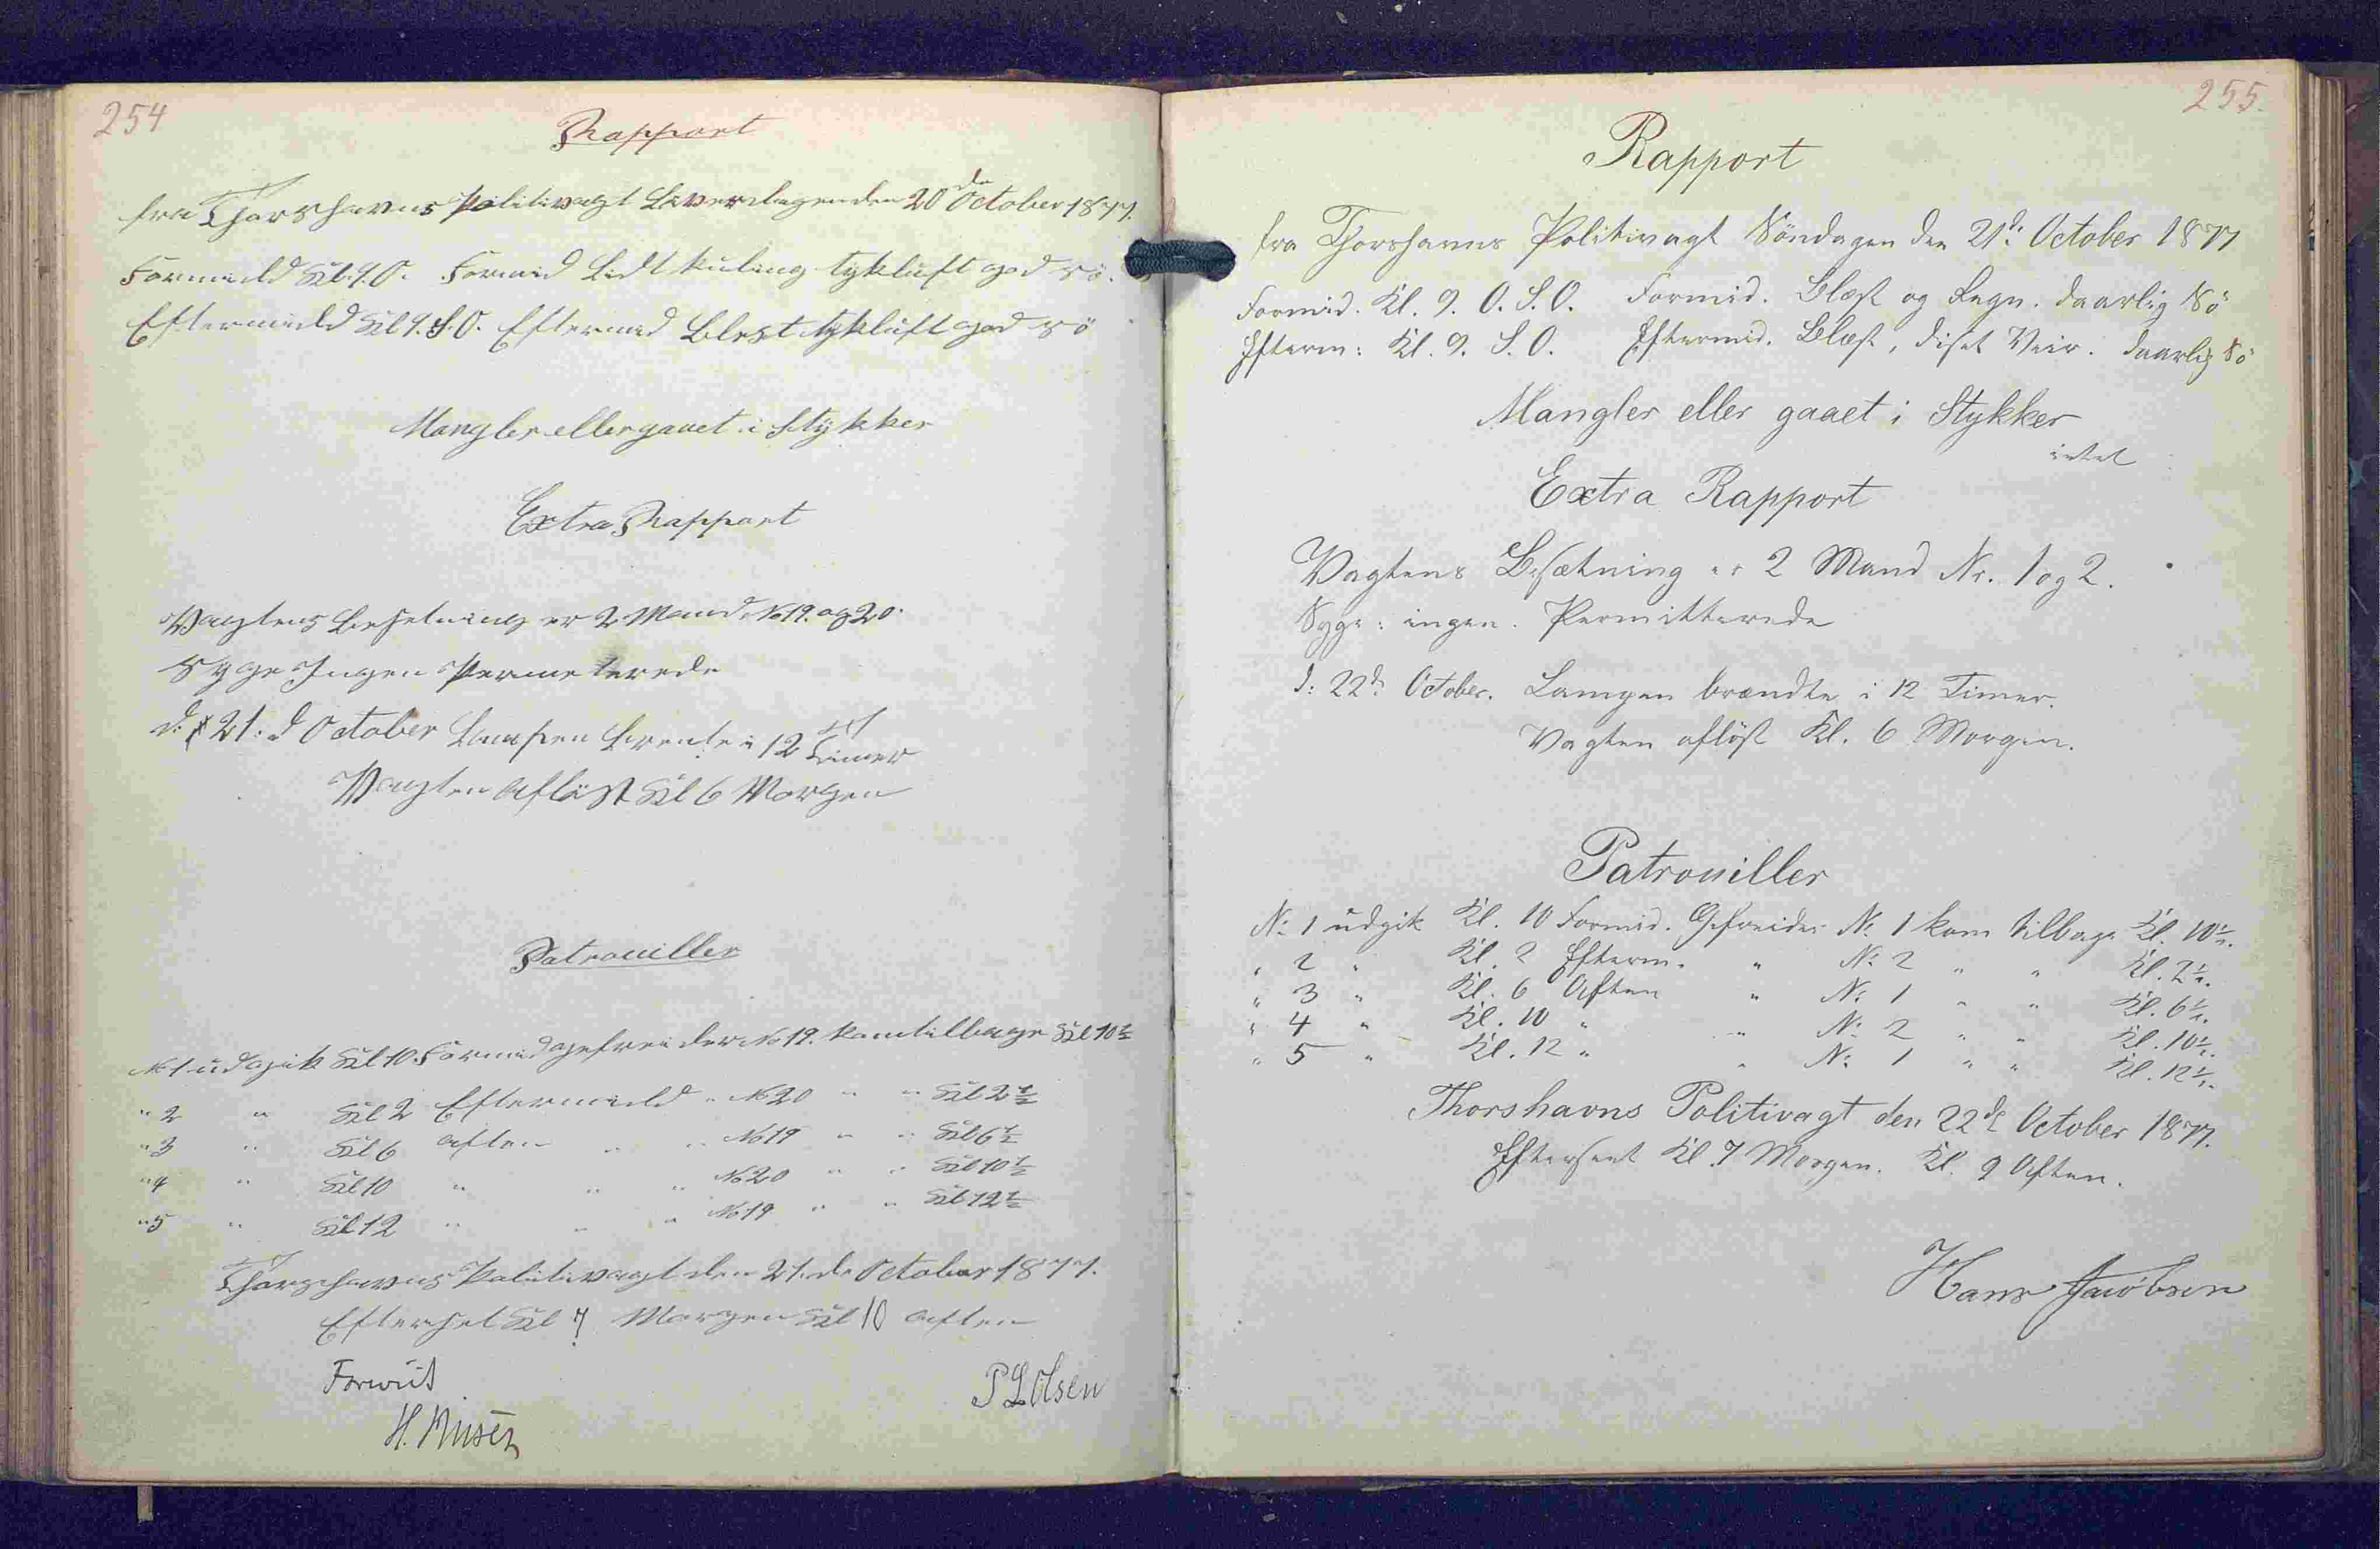 254
Rapport
fra Thorshavns Politivagt Löverdagen den 20de October 1877.
Formidd Kl. 9. O. Formid Lidt kuling tykluft god sö.
Eftermidd Kl 9. S.O. Eftermid Blest tykluft god sö
Mangler eller gaaet i Stykker
Extra Rapport
Vagtens Besetning er 2 Mand No 19. og 20.
Syge Ingen Permeterede
d: 21. d October Lampen brente i 12 Timer
Vagten Aflöst Kl 6 Morgen
Patrouiller
No 1 udgik Kl 10. Formid gefreider No 19. kom tilbage Kl 10½
" 2 " Kl 2 Eftermidd " No 20 " " Kl 2½
" 3 " Kl 6 aften " " No 19 " " Kl 6½
" 4 " Kl 10 " " " No 20 " " Kl 10½
" 5 " Kl 12 " " " No 19 " " Kl 12½
Thorshavns Politivagt den 21. de October 1877.
Efterset Kl 7 Morgen Kl 10 aften
Forevist
P L Olsen
H.
255.
Rapport
fra Thorshavns Politivagt Söndagen den 21de October 1877
Formid. Kl. 9. O.S.O. Formid. Blæst og Regn. daarlig Sö
Efterm: Kl. 9. S.O. Eftermid. Blæst, diset Veir. daarlig Sö
Mangler eller gaaet i Stykker
intet
Extra Rapport
Vagtens Besætning er 2 Mand Nr. 1 og 2.
Syge: ingen. Permitterede
d: 22de October. Lampen brændte i 12 Timer.
Vagten aflöst Kl. 6 Morgen.
Patrouiller
No 1 udgik Kl. 10 Formid. Gefreider No 1 kom tilbage Kl. 10½.
" 2 " Kl. 2 Efterm. " No 2 " " Kl. 2½.
" 3 " Kl. 6 Aften " No 1 " " Kl. 6½.
" 4 " Kl. 10 " " No 2 " " Kl. 10½.
" 5 " Kl. 12 " " No 1 " " Kl. 12½.
Thorshavns Politivagt den 22de October 1877.
Efterseet Kl. 7 Morgen. Kl. 9 Aften.
Hans Jacobsen